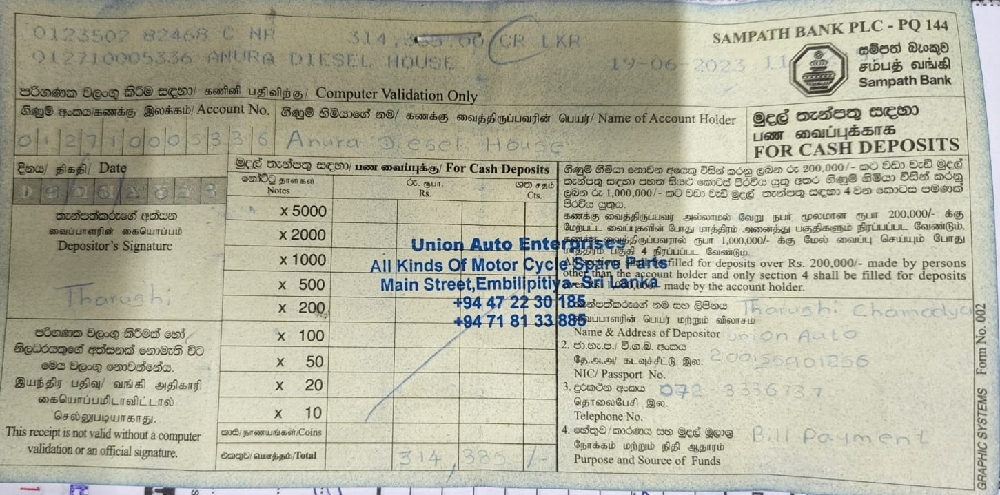 0123502 82468 C NR 314,385.00 CR LKR
012710005336 ANURA DIESEL HOUSE 19-06-2023 11
SAMPATH BANK PLC - PQ 144
සම්පත් බැංකුව
சம்பத் வங்கி
Sampath Bank
පරිගණක වලංගු කිරීම සඳහා/ கணினி பதிவிற்கு/ Computer Validation Only
ගිණුම් අංකය/கணக்கு இலக்கம்/ Account No.
ගිණුම් හිමියාගේ නම/ கணக்கு வைத்திருப்பவரின் பெயர்/ Name of Account Holder
012710005336 Anura Diesel House
මුදල් තැන්පතු සඳහා
பண வைப்புக்காக
FOR CASH DEPOSITS
දිනය/ திகதி/ Date
තැන්පත්කරුගේ අත්සන
வைப்பாளரின் கையொப்பம்
Depositor's Signature
Tharushi
පරිගණක වලංගු කිරීමක් හෝ
නිලධරයකුගේ අත්සනක් නොමැති විට
මෙය වලංගු නොවන්නේය.
இயந்திர பதிவு/ வங்கி அதிகாரி
கையொப்பமிடாவிட்டால்
செல்லுபடியாகாது.
This receipt is not valid without a computer
validation or an official signature.
මුදල් තැන්පතු සඳහා/ பண வைப்புக்கு/ For Cash Deposits
නෝට්ටු தாள்கள் Notes
රු. ரூபா. Rs.
ශත சதம் Cts.
x 5000
x 2000
x 1000
x 500
x 200
x 100
x 50
x 20
x 10
කාසි/நாணயங்கள்/Coins
එකතුව/மொத்தம்/Total 314,385/-
Union Auto Enterprises
All Kinds Of Motor Cycle Spare Parts
Main Street,Embilipitiya. Sri Lanka
+94 47 22 30 185
+94 71 81 33 885
ගිණුම් හිමියා නොවන අයෙකු විසින් කරනු ලබන රු 200,000/- කට වඩා වැඩි මුදල්
තැන්පතු සඳහා පහත සියළු කොටස් පිරවිය යුතු අතර ගිණුම් හිමියා විසින් කරනු
ලබන රු 1,000,000/- කට වඩා වැඩි මුදල් තැන්පතු සඳහා 4 වන කොටස පමණක්
පිරවිය යුතුය.
கணக்கு வைத்திருப்பவர் அல்லாமல் வேறு நபர் மூலமான ரூபா 200,000/- க்கு
மேற்பட்ட வைப்புகளின் போது மாத்திரம் அனைத்து பகுதிகளும் நிரப்பப்பட வேண்டும்.
ரூபா 1,000,000/- க்கு மேல் வைப்பு செய்யும் போது
மாத்திரம் பகுதி 4 நிரப்பப்பட வேண்டும்.
filled for deposits over Rs. 200,000/- made by persons
other than the account holder and only section 4 shall be filled for deposits
made by the account holder.
තැන්පත්කරුගේ නම සහ ලිපිනය Tharushi Chamodya
வைப்பாளரின் பெயர் மற்றும் விலாசம்
Name & Address of Depositor union Auto
2. ජා.හැ.ප./ වි.ග.බ. අංකය
தே.அ.அ/ கடவுச்சீட்டு இல.
NIC/ Passport No.
3. දුරකථන අංකය 072-3336737
தொலைபேசி இல.
Telephone No.
4. හේතුව/කාරණය සහ මුදල් මූලාශ්‍ර Bill Payment
நோக்கம் மற்றும் நிதி ஆதாரம்
Purpose and Source of Funds
GRAPHIC SYSTEMS Form No. 002